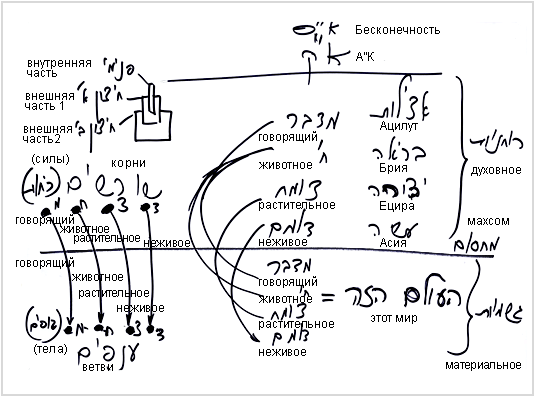 א"ס Бесконечность
א"ק А"К
внутренняя часть פנימי
внешняя часть 1 חיצון א'
внешняя часть2 חיצון ב'
(силы) корни
(כוחות) שורשים
מ ח צ ד
говорящий
животное
растительное
неживое
מדבר אצילות
говорящий Ацилут
חי בריאה
животное Брия
צומח יצירה
растительное Ецира
דומם עשיה
неживое Асия
רוחניות
духовное
махсом
מחסום
говорящий
животное
растительное
неживое
(גופים) מ ח צ ד
(тела) ענפים
ветви
מדבר
говорящий
חי = העולם הזה
животное этот мир
צומח
растительное
דומם
неживое
גשמיות
материальное